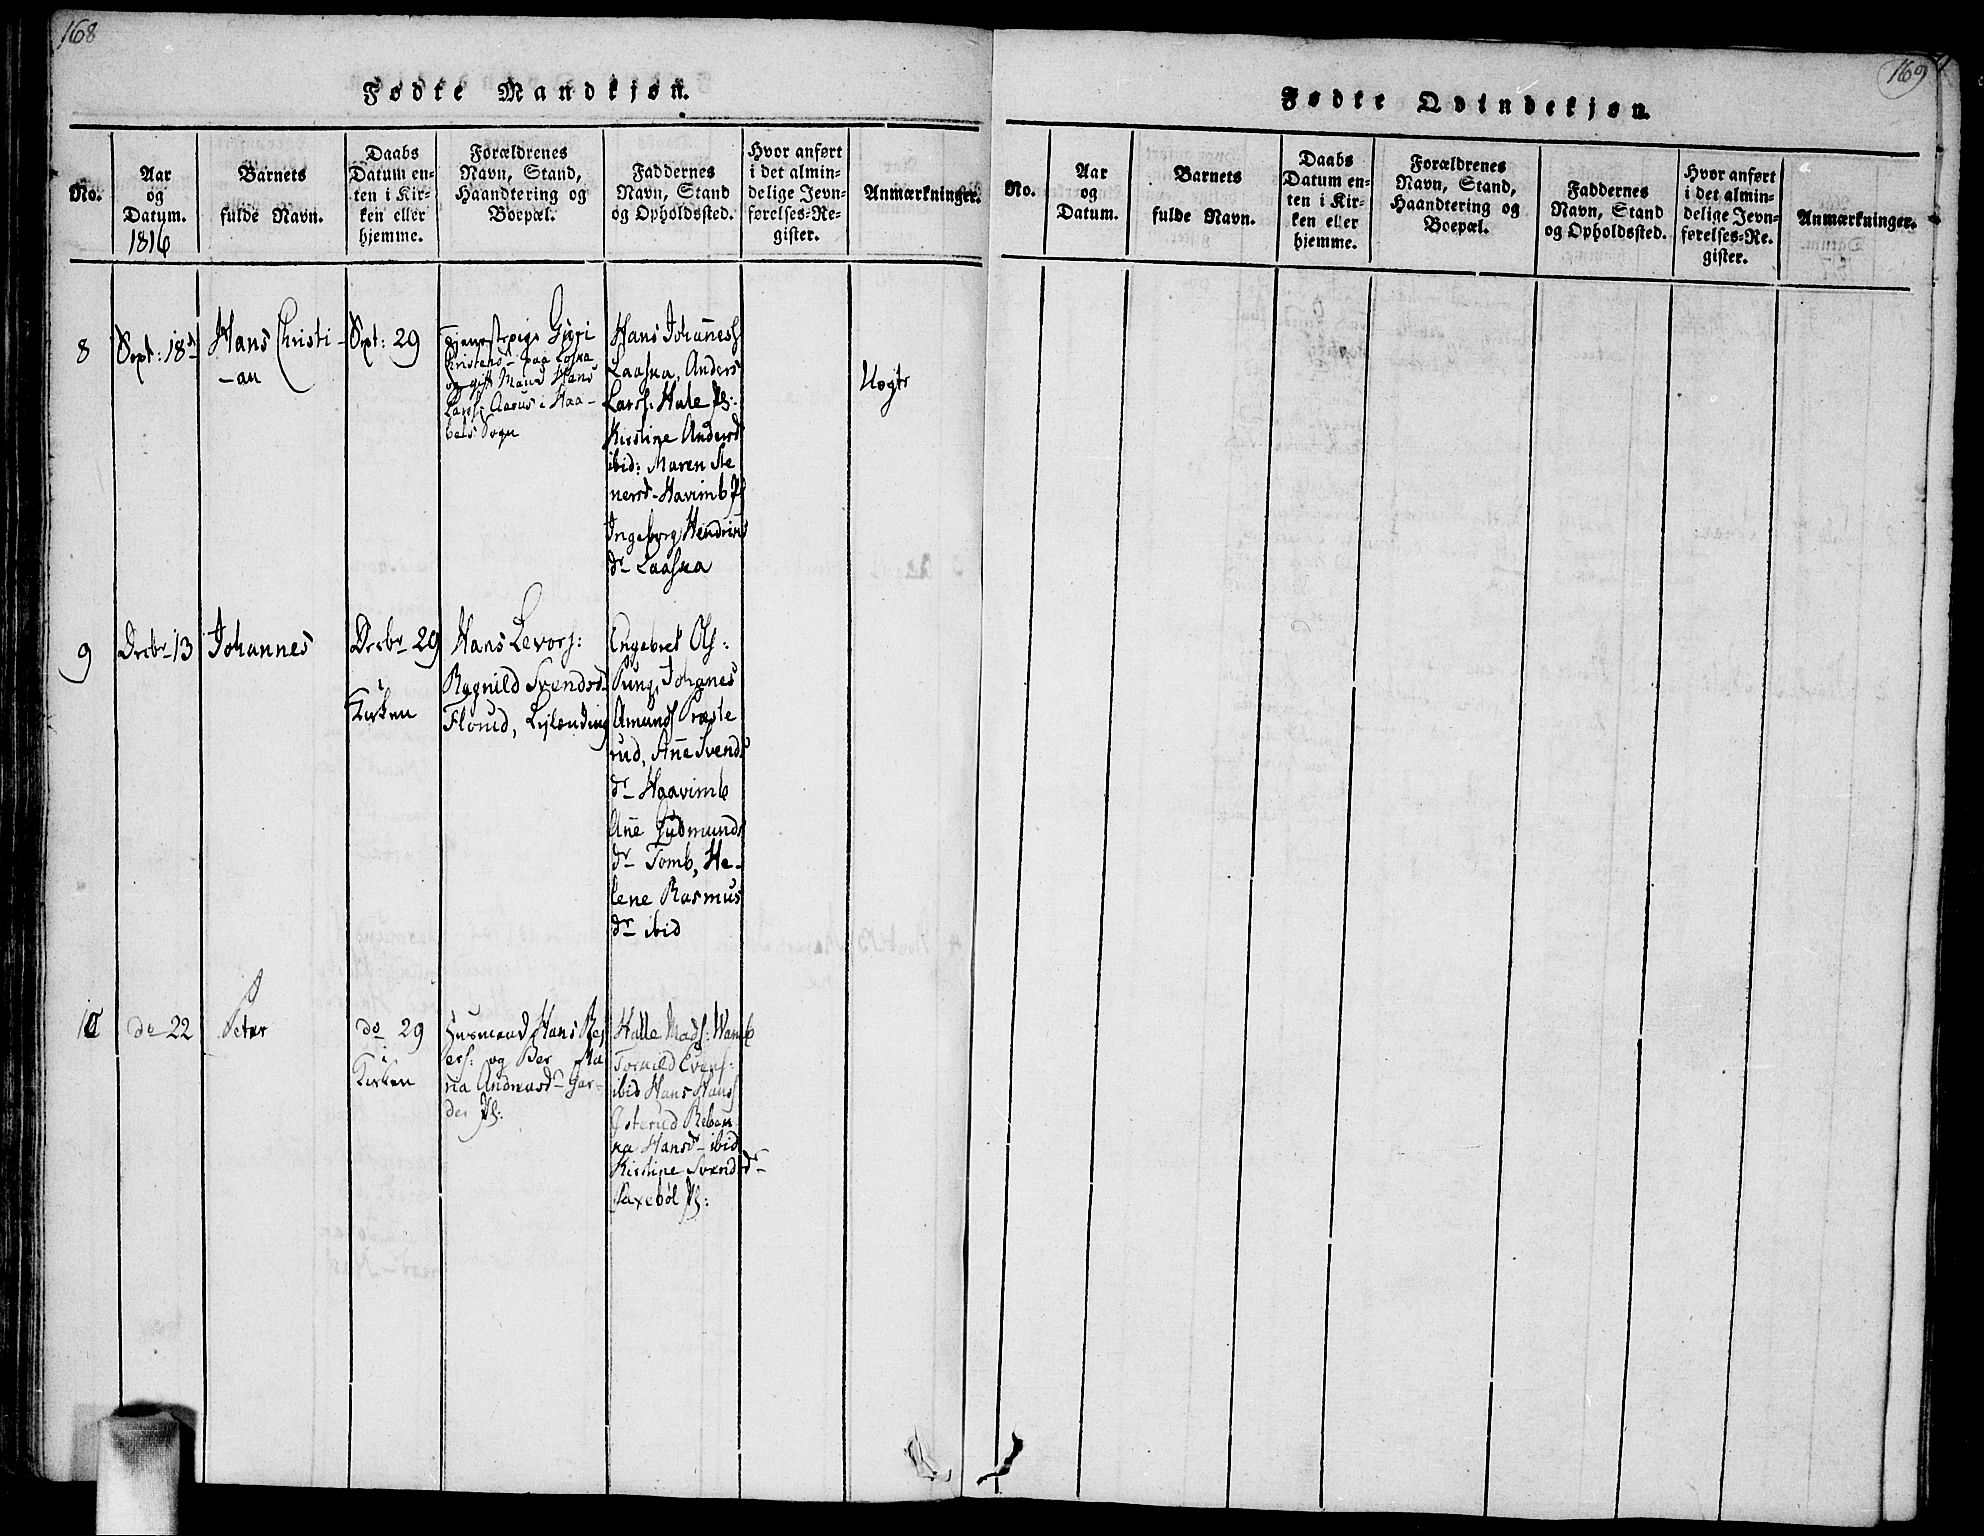 168
Fødte Mandkjøn.
No.
Aar
og
Datum.
1816
Barnets
fulde Navn.
Daabs
Datum en-
ten i Kir-
ken eller
hjemme.
Forældrenes
Navn, Stand,
Haandtering og
Boepæl.
Faddernes
Navn, Stand
og Opholdssted.
Hvor anført
i det almin-
delige Jevn-
førelses-Re-
gister.
Anmærkninger.
8
Sept: 18de
Hans Christi-
-an
Sept: 29
Guri
paa
og gift Mand Hans
Larss: Aarus i Haa-
bøls Sogn
Hans Johañess
Laaska, Anders
Larss: Hule Pl:
Kirstine Andersd
ibid: Maren Ste
nersd- Havimb Pl
Ingeborg Hendrics
dr Laaska
Uegte
9
Decbr 13
Johannes
Decbr 29
i
Kirken
Hans Levors:
Ragnild Svendsd-
Florud, Leylænding
Engebret Ols:
Pung, Johanes
Amunds Præste
rud, Añe Svends
dr Haavimb
Añe Gudmunds
dr Tomb, He-
lene Rasmus
dr ibid
10
do 22
Peter
do 29
i
Kirken
Huusmand Hans
ers: og Ber
na Andreasd- Gar-
der Pl:
Halle Mads: Wamb
ibid Hans Hans
Østerud Rebec
ka Hansd- ibid
Kirstine Svendsd-
Saxebøl Pl:
169
Fødte Qvindekjøn.
No.
Aar
og
Datum.
Barnets
fulde Navn.
Daabs
Datum en-
ten i Kir-
ken eller
hjemme.
Forældrenes
Navn, Stand,
Haandtering og
Boepæl.
Faddernes
Navn, Stand
og Opholdssted.
Hvor anført
i det almin-
delige Jevn-
førelses-Re-
gister.
Anmærkninger.